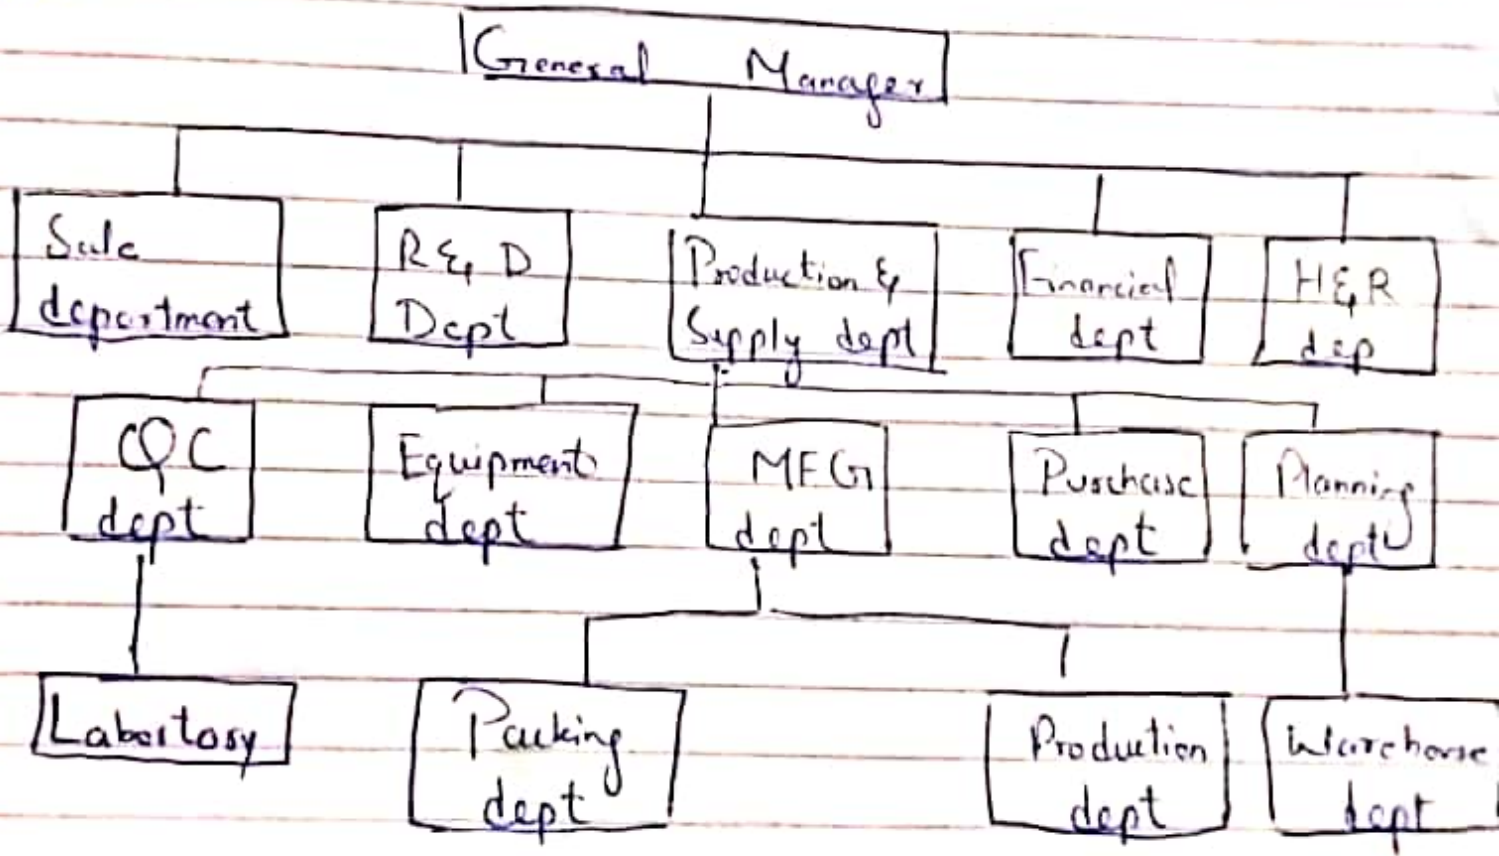 General Manager
Sale
department
R & D
Dept
Production &
Supply dept
Financial
dept
H & R
dep
QC
dept
Equipment
dept
MFG
dept
Purchase
dept
Planning
dept
Labortory
Packing
dept
Production
dept
Warehouse
dept